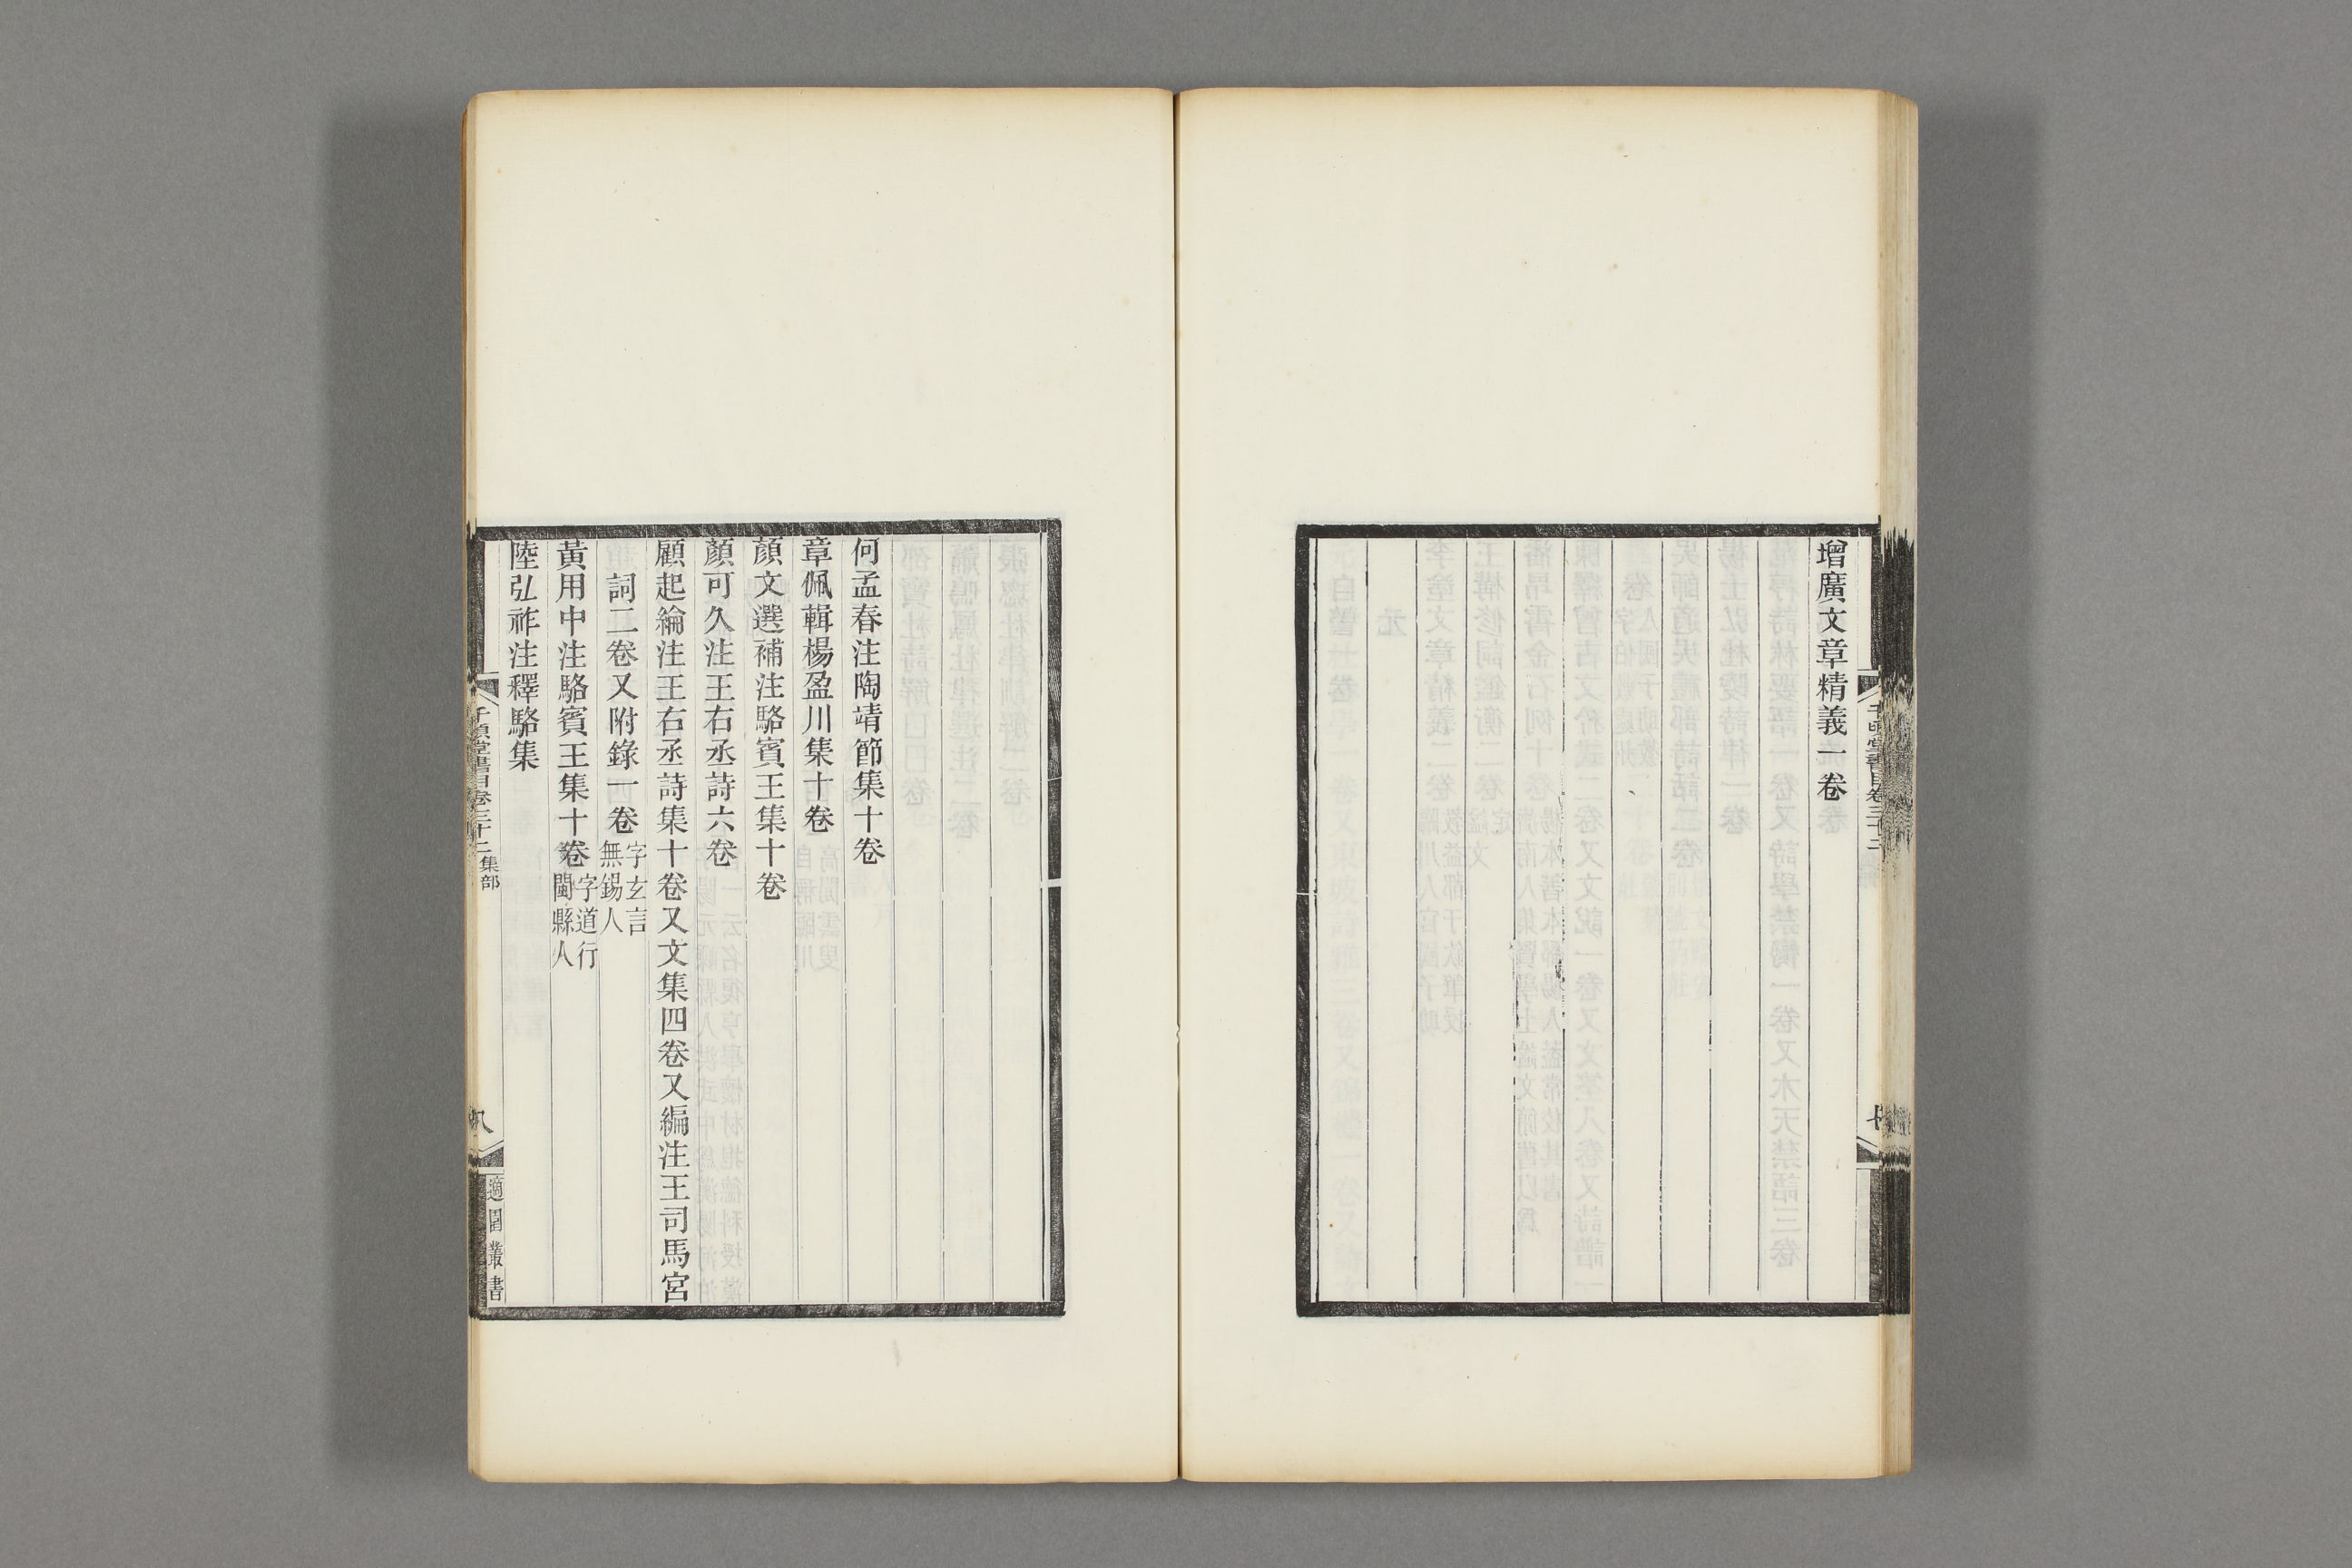 增廣文章精義一卷
千頃堂書目卷三十二
何孟春注陶靖節集十卷
章佩輯楊盈川集十卷
顏文選補注駱賓王集十卷
顏可久注王右丞詩六卷
顧起綸注王右丞詩集十卷又文集四卷又編注王司馬宮
詞二卷又附錄一卷字玄言無錫人
黃用中注駱賓王集十卷字道行閩縣人
陸弘祚注釋駱集
千頃堂書目卷三十二 集部
八
適園叢書